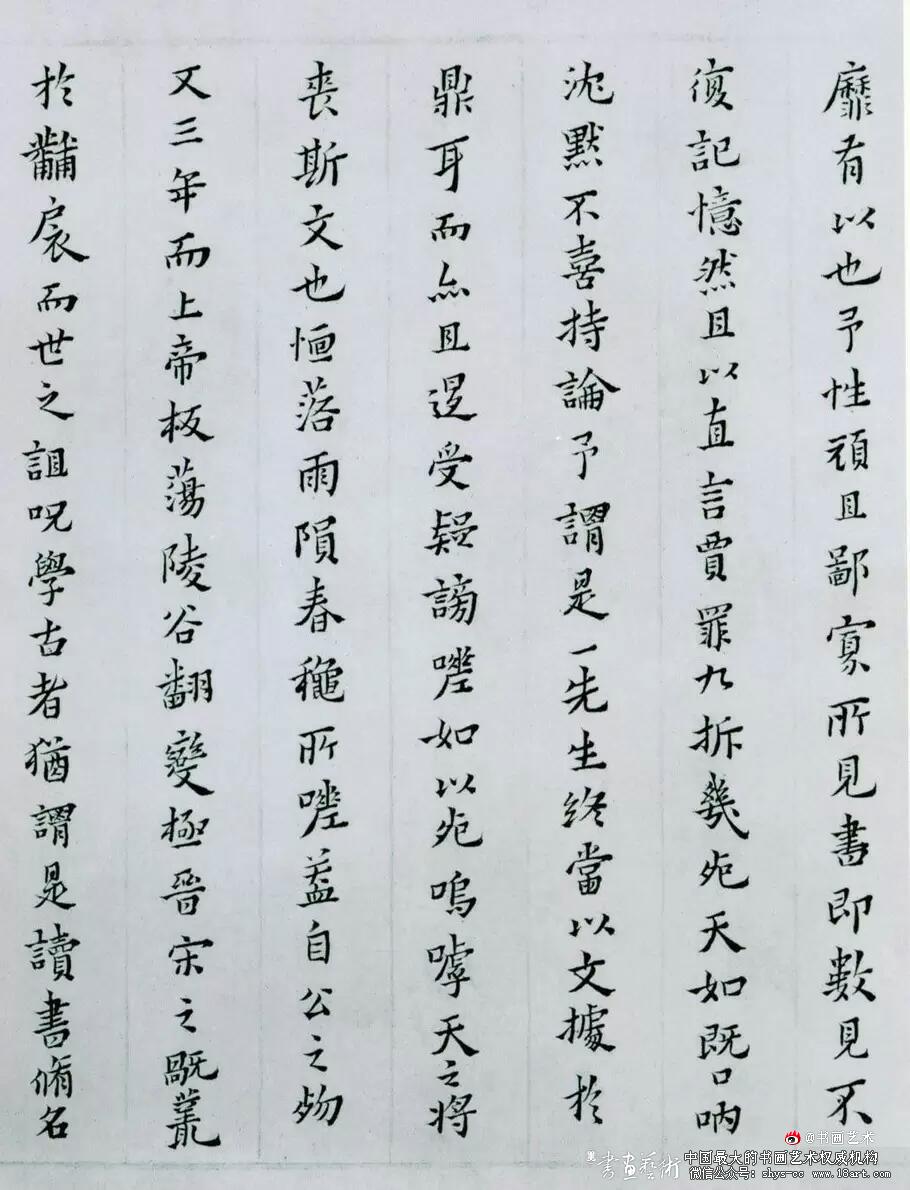 靡有以也予性頑且鄙寡所見書即數見不
復記憶然且以直言賈罪九拆幾死天如既口吶
沈默不喜持論予謂是一先生終當以文據於
鼎耳而亦且受疑謗如以死嗚嘑天之將
喪斯文也恒落雨隕春穐所蓋自公之歾
又三年而上帝板蕩陵谷翻變極晉宋之嘅叢
於黼扆而世之詛呪學古者猶謂是讀書脩名
@书画艺术
書画藝術
中国最大的书画艺术权威机构
微信公众号: shys-cc www.18art.com